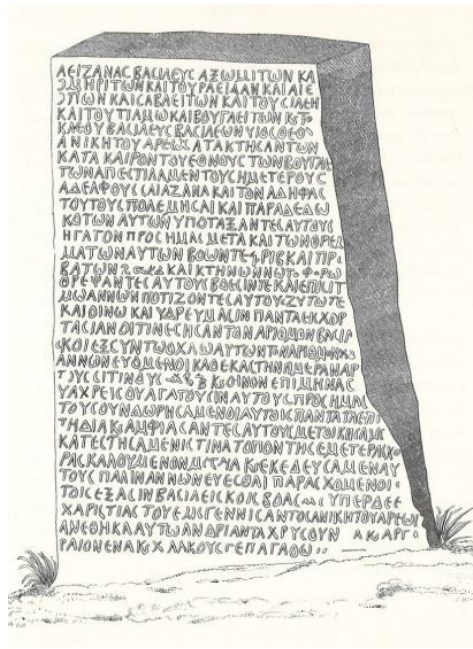 ΑΕΙΖΑΝΑϹ ΒΑϹΙΛΕΥϹ ΑΞΩΜΙΤΩΝ ΚΑ
ΟΜΗΡΙΤΩΝ ΚΑΙ ΤΟΥ ΡΑΕΙΔΑΝ ΚΑΙ ΑΙΕ
ΟΠΩΝ ΚΑΙ ϹΑΒΑΕΙΤΩΝ ΚΑΙ ΤΟΥ ϹΙΛΕΗ
ΚΑΙ ΤΟΥ ΤΙΑΜΩ ΚΑΙ ΒΟΥΓΑΕΙΤΩΝ Κ ΤΟ
ΚΑΕΟΥ ΒΑϹΙΛΕΥϹ ΒΑϹΙΛΕΩΝ ΥΙΟϹ ΘΕΟ
ΑΝΙΚΗΤΟΥ ΑΡΕΩϹ ΑΤΑΚΤΗϹΑΝΤΩΝ
ΚΑΤΑ ΚΑΙΡΟΝ ΤΟΥ ΕΘΝΟΥϹ ΤΩΝ ΒΟΥΓΑΕ
ΤΩΝ ΑΠΕϹΤΙΛΑΜΕΝ ΤΟΥϹ ΗΜΕΤΕΡΟΥϹ
ΑΔΕΛΦΟΥϹ ϹΑΙΑΖΑΝΑ ΚΑΙ ΤΟΝ ΑΔΗΦΑϹ
ΤΟΥΤΟΥϹ ΠΟΛΕΜΗϹΑΙ ΚΑΙ ΠΑΡΑΔΕΔΩ
ΚΟΤΩΝ ΑΥΤΩΝ ΥΠΟΤΑΞΑΝΤΕϹ ΑΥΤΟΥϹ
ΗΓΑΓΟΝ ΠΡΟϹ ΗΜΑϹ ΜΕΤΑ ΚΑΙ ΤΩΝ ΘΡΕΜ
ΜΑΤΩΝ ΑΥΤΩΝ ΒΟΩΝ ΤΕ ΚΑΙ ΠΡΟ
ΒΑΤΩΝ ΚΑΙ ΚΤΗΝΩΝ
ΘΡΕΨΑΝΤΕϹ ΑΥΤΟΥϹ ΒΟΕϹΙΝ ΤΕ Κ ΕΠΙϹΙΤ
ΜΩ ΑΝΝΩΝ ΠΟΤΙΖΟΝΤΕϹ ΑΥΤΟΥϹ ΖΥΤΩ ΤΕ
ΚΑΙ ΟΙΝΩ ΚΑΙ ΥΔΡΕΥΜΑϹΙΝ ΠΑΝΤΑ ΕΙϹ ΧΟΡ
ΤΑϹΙΑΝ ΟΙΤΙΝΕϹ ΗϹΑΝ ΤΟΝ ΑΡΙΘΜΟΝ ΒΑϹΙΛ
ϹΚΟΙ ΕΞ ϹΥΝ ΤΩ ΟΧΛΩ ΑΥΤΩΝ ΤΟΝ ΑΡΙΘΜΟΝ
ΑΝΝΩΝΕΥΟΜΕΝΟΙ ΚΑΘ ΕΚΑϹΤΗΝ ΗΜΕΡΑΝ ΑΡ
ΤΟΥϹ ϹΙΤΙΝΟΥϹ Κ ΟΙΝΟΝ ΕΠΙ ΜΗΝΑϹ
ΑΧΡΕΙϹ ΟΥ ΑΓΑΓΟΥϹΙΝ ΑΥΤΟΥϹ ΠΡΟϹ ΗΜΑϹ
ΤΟΥϹ ΟΥΝ ΔΩΡΗϹΑΜΕΝΟΙ ΑΥΤΟΙϹ ΠΑΝΤΑ ΤΑ ΕΠΙ
ΤΗΔΙΑ Κ ΑΜΦΙΑϹΑΝΤΕϹ ΑΥΤΟΥϹ ΜΕΤΟΙΚΗϹΑΜ
ΚΑΤΕϹΤΗϹΑΜΕΝ ΙϹ ΤΙΝΑ ΤΟΠΟΝ ΤΗϹ ΗΜΕΤΕΡΑϹ ΧΟ
ΡΑϹ ΚΑΛΟΥΜΕΝΟΝ Κ ΕΚΕΛΕΥϹΑΜΕΝ ΑΥ
ΤΟΥϹ ΠΑΛΙΝ ΑΝΝΩΝΕΥΕϹΘΑΙ ΠΑΡΑϹΧΟΜΕΝΟΙ
ΤΟΙϹ ΕΞΑϹΙΝ ΒΑϹΙΛΕΙϹΚΟΙϹ ΒΟΑϹ ΥΠΕΡ ΔΕ Ε
ΧΑΡΙϹΤΙΑϹ ΤΟΥ ΕΜΕ ΓΕΝΝΗϹΑΝΤΟϹ ΑΝΙΚΗΤΟΥ ΑΡΕΩϹ
ΑΝΕΘΗΚΑ ΑΥΤΩ ΑΝΔΡΙΑΝΤΑ ΧΡΥϹΟΥΝ Α Κ ΑΡΓΥ
ΡΑΙΟΝ ΕΝΑ Κ ΧΑΛΚΟΥϹ Γ ΕΠ ΑΓΑΘΩ